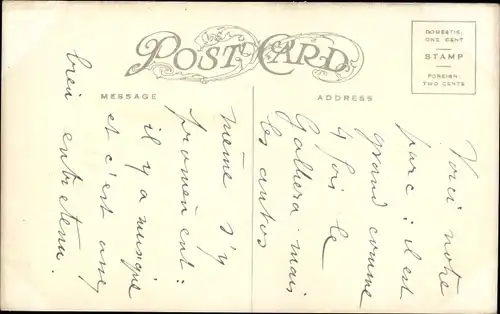 POST CARD
DOMESTIC
ONE CENT
STAMP
FOREIGN
TWO CENTS
MESSAGE
ADDRESS
Voici notre
parc : il est
grand comme
4 fois le
Galhera. mais
les autos
même s'y
promènent :
il y a musique
et c'est assez
bien entretenu.